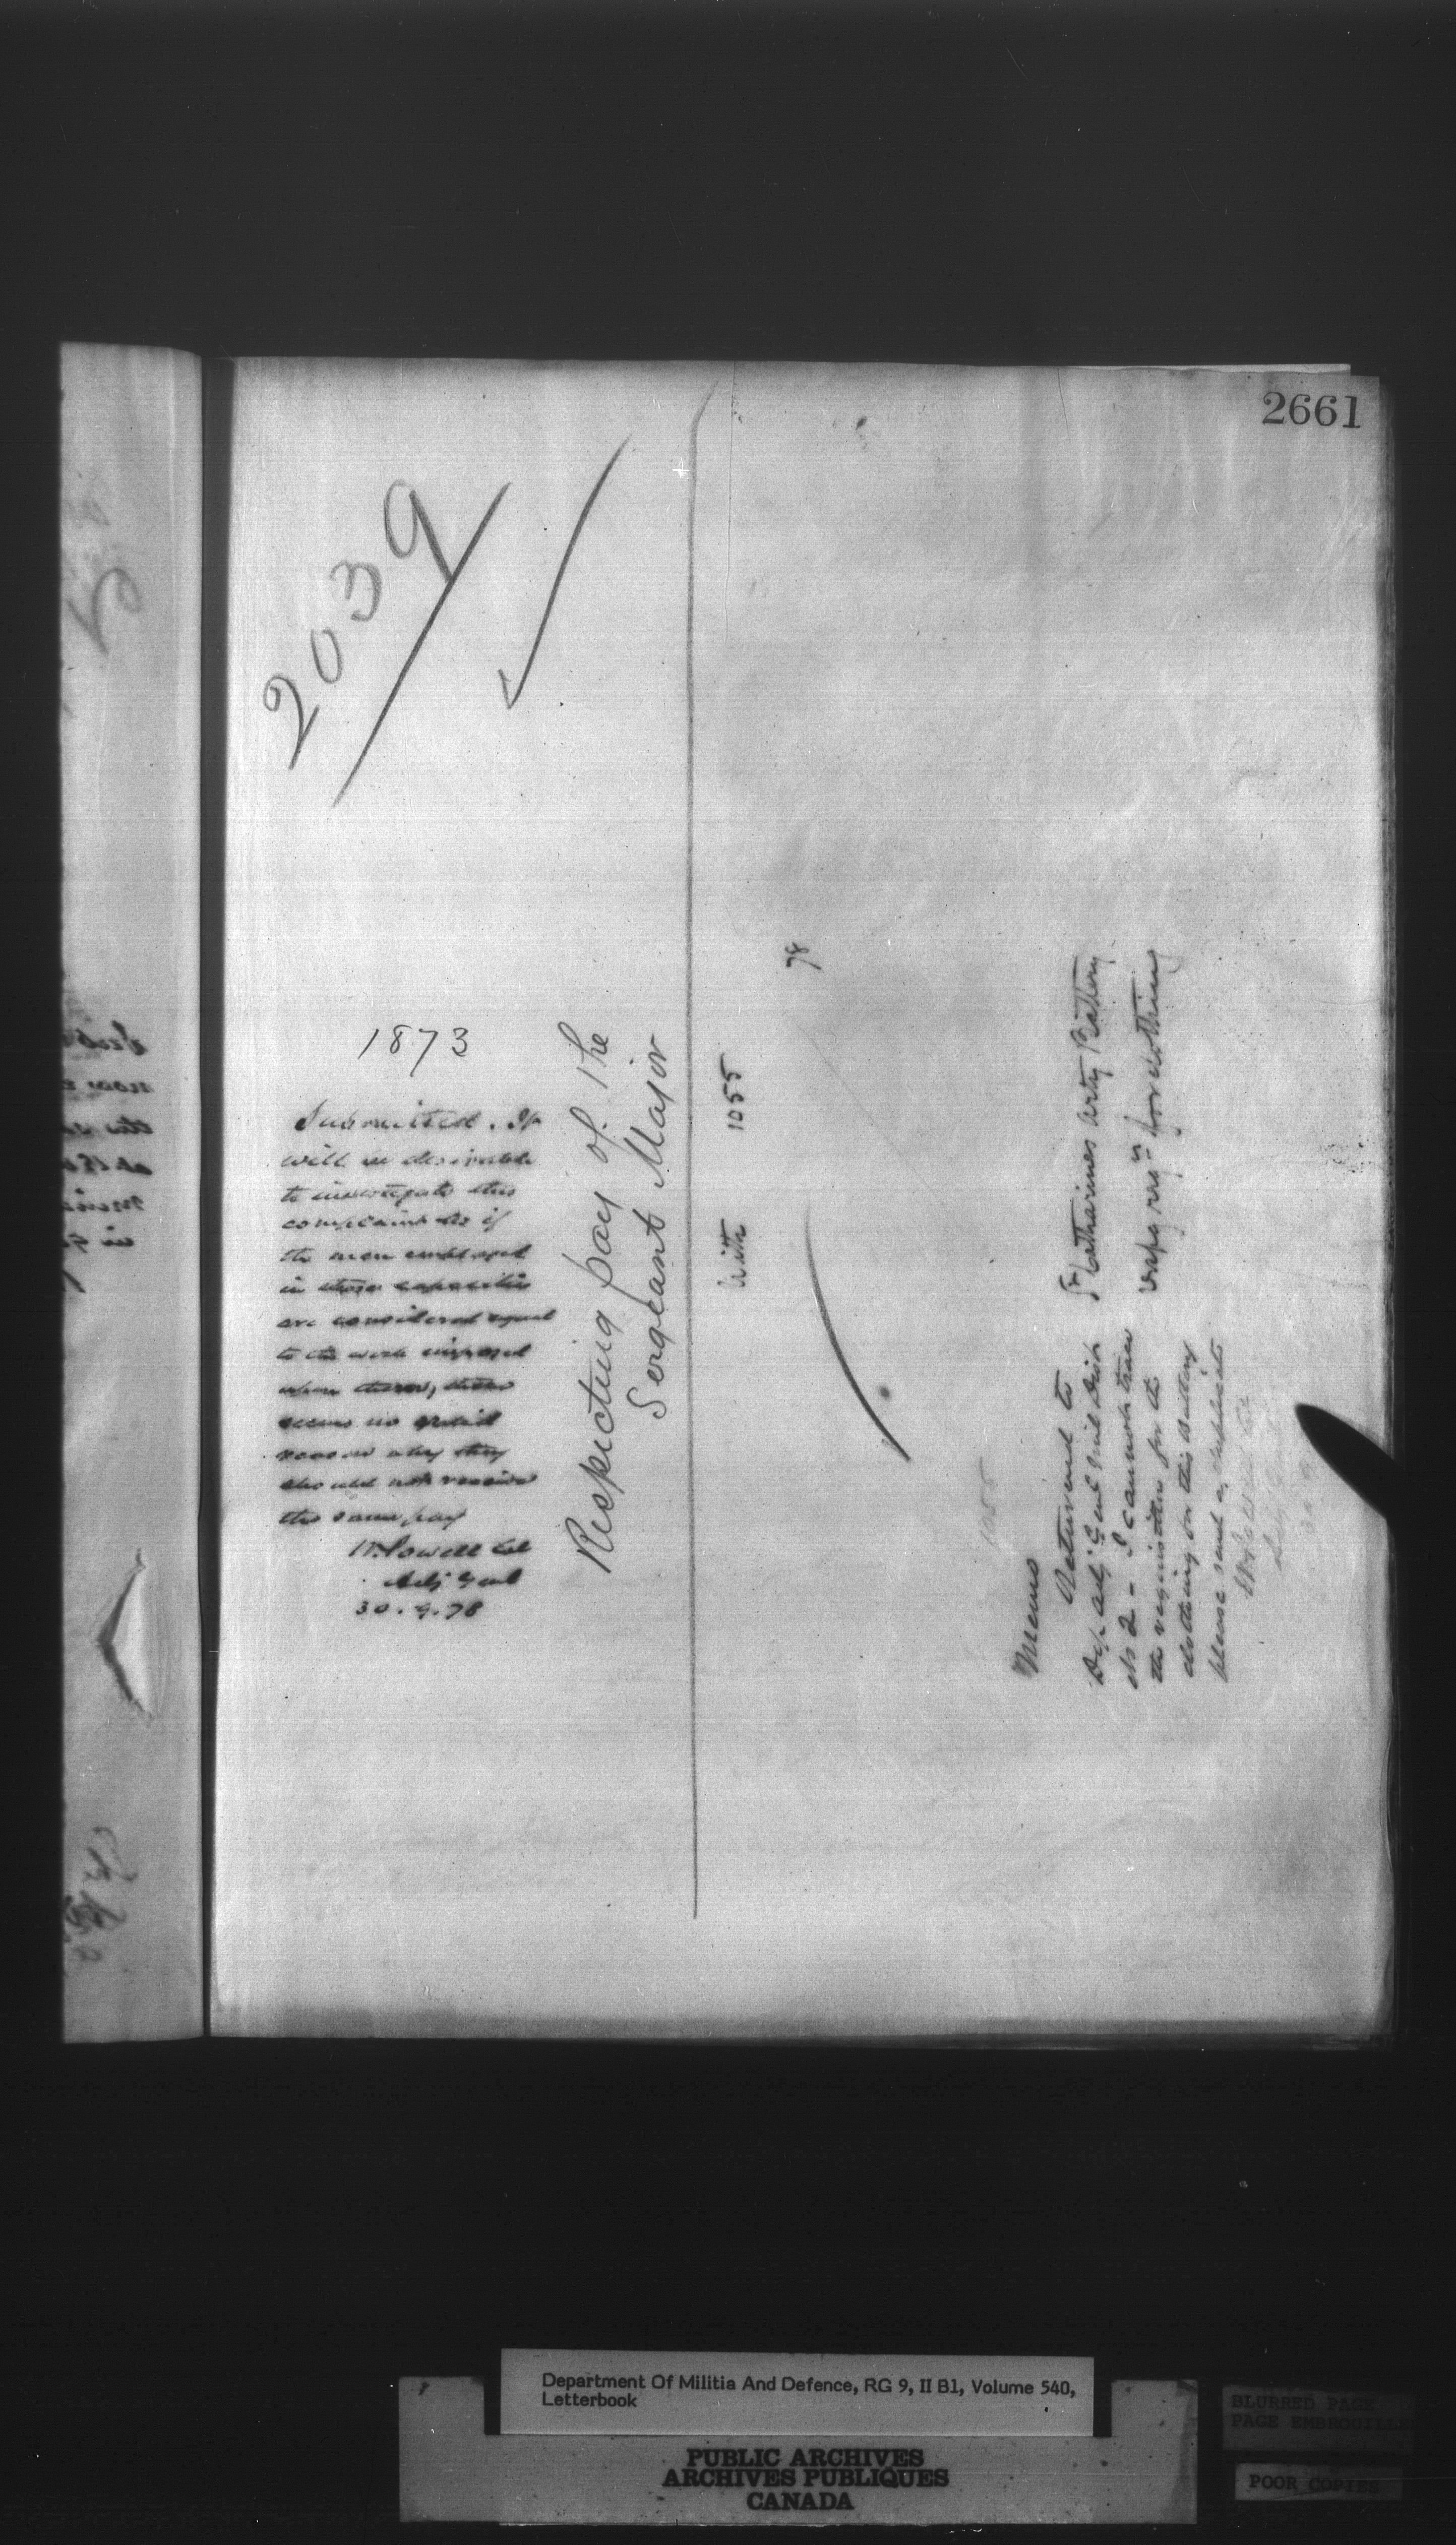 2661
2039
1873
Submitted. It
will be desirable
to investigate this
complaint as if
the men employed
in these capacities
are considered equal
to the work imposed
upon them, there
seems no good
reason why they
should not receive
the same pay
W. Powell Col
Adj Genl
30.9.78
Respecting pay of the
Sergeant Major
with 1055
78
1055
St Catharines Arty Battery
resp. reqn for clothing
Memo
Returned to
Dep. Adj Genl Mil Dist
No 2 - I cannot trace
the requisition for the
clothing for this Battery
please send a duplicate
Department Of Militia And Defence, RG 9, II B1, Volume 540,
Letterbook
PUBLIC ARCHIVES
ARCHIVES PUBLIQUES
CANADA
BLURRED PAGE
PAGE EMBROUILLÉE
POOR COPIES